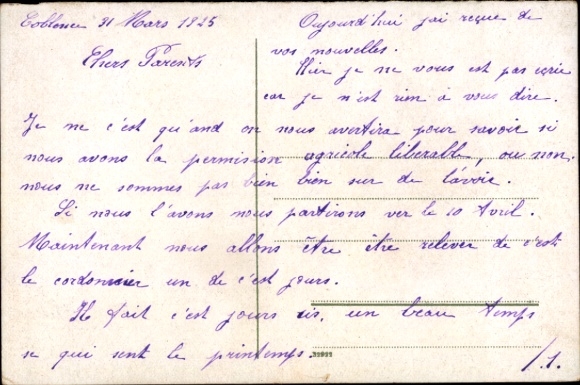 Coblence 31 Mars 1925
Chers Parents
Aujourd'hui j'ai reçue de
vos nouvelles.
Hier je ne vous est pas écrie
car je n'est rien à vous dire.
Je ne c'est qu'and on nous avertira pour savoir si
nous avons la permision agricole liberable, ou non.
nous ne sommes pas bien bien sur de l'avoir.
Si nous l'avons nous partirons ver le 10 Avril.
Maintenant nous allons être être relever de c'est
le cordonnier un de c'est jours.
Il fait c'est jours cis, un beau temps
se qui sent le printemps.
/ 1.